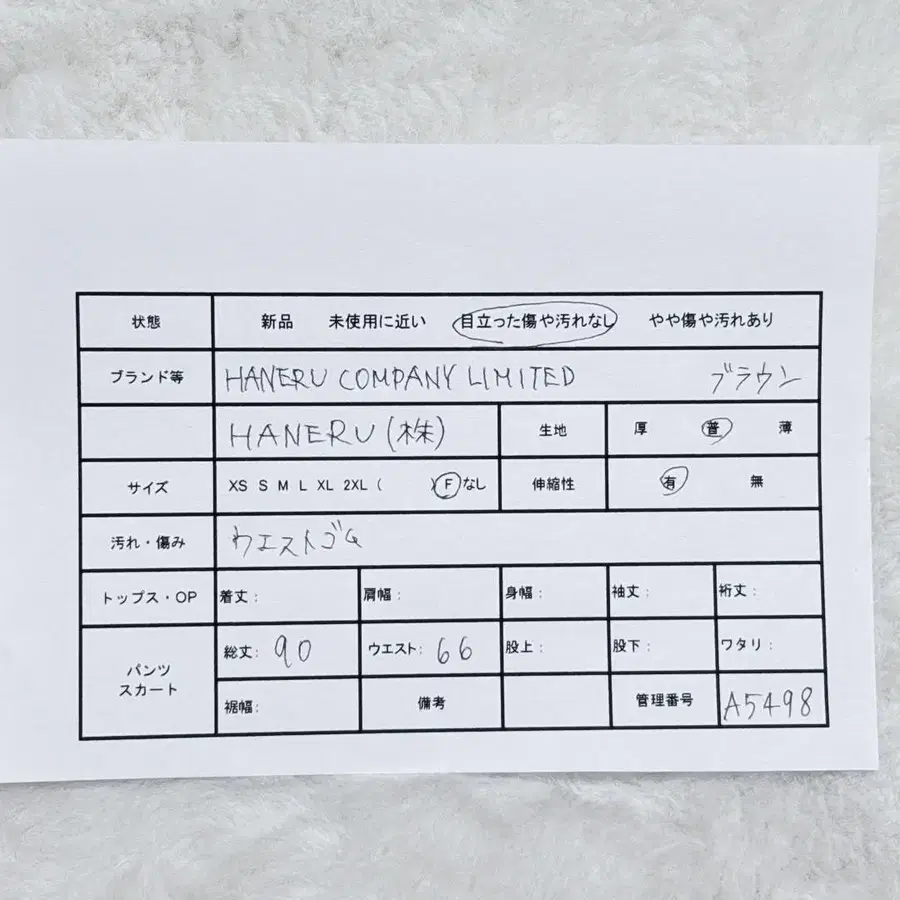 状態 新品 未使用に近い 目立った傷や汚れなし やや傷や汚れあり
ブランド等 HANERU COMPANY LIMITED ブラウン
HANERU (株) 生地 厚 普 薄
サイズ XS S M L XL 2XL ( ) F なし 伸縮性 有 無
汚れ・傷み ウエストゴム
トップス・OP 着丈: 肩幅: 身幅: 袖丈: 裄丈:
パンツ スカート 総丈: 90 ウエスト: 66 股上: 股下: ワタリ:
裾幅: 備考 管理番号 A5498